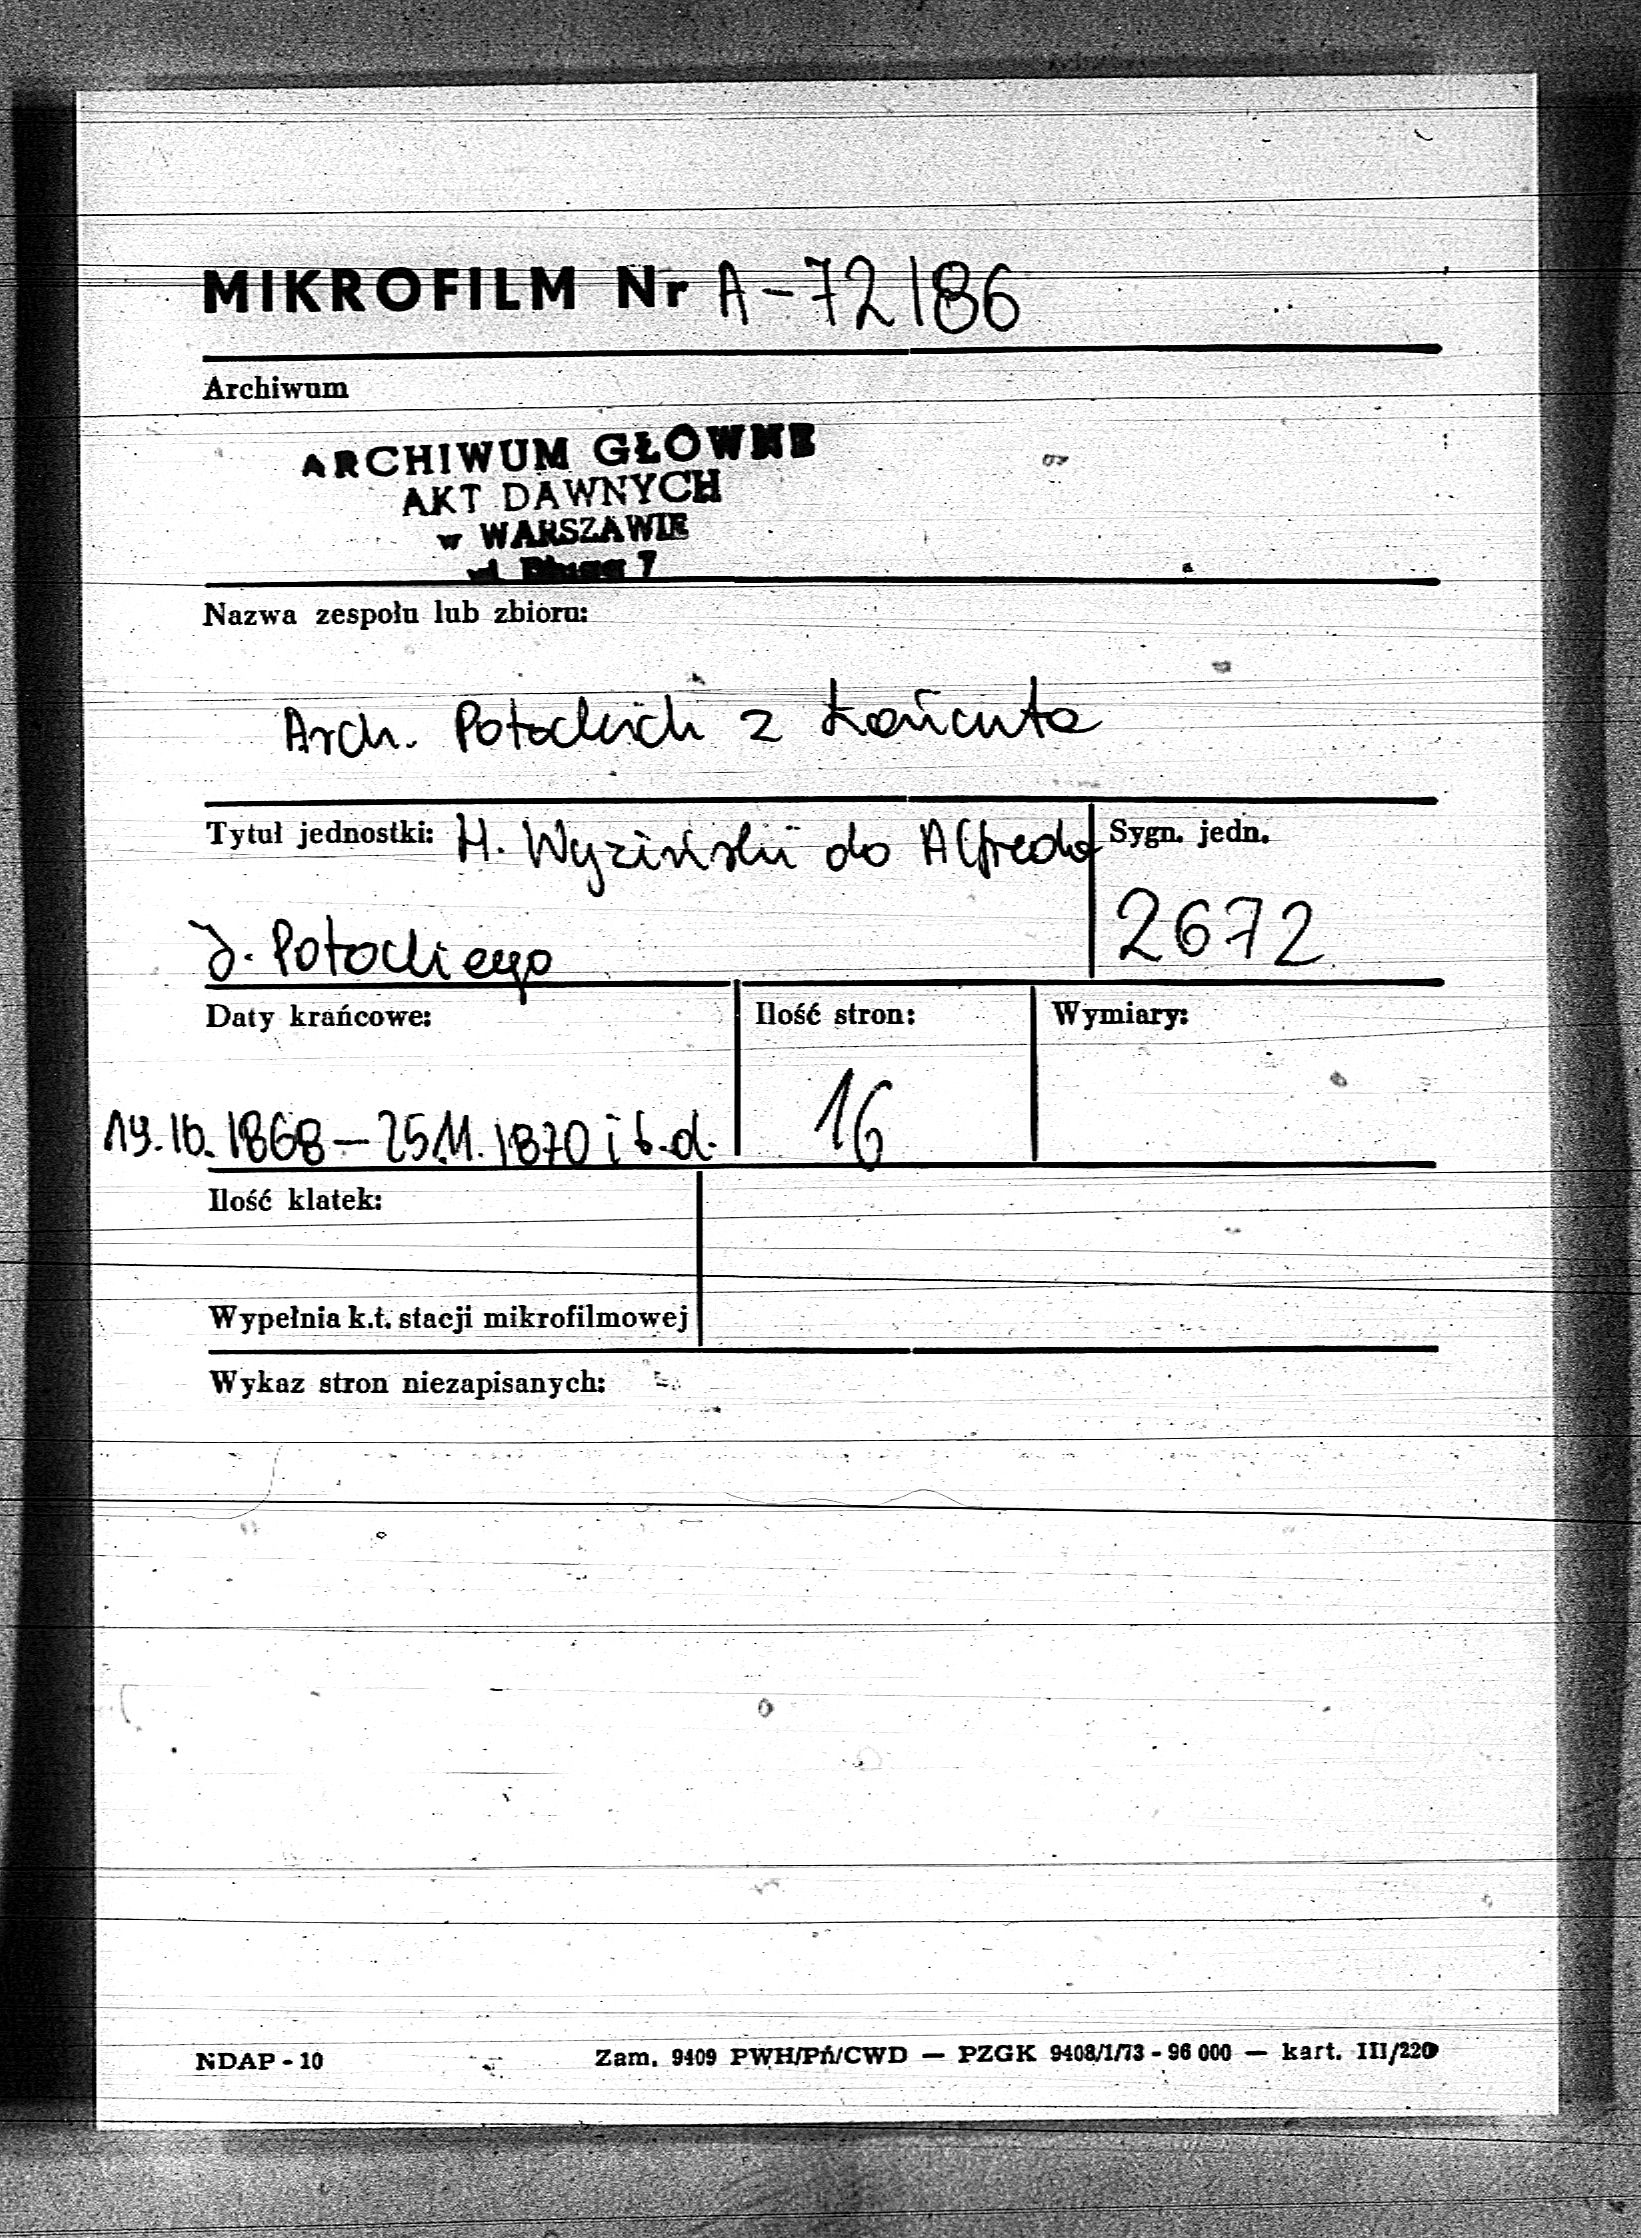 MIKROFILM Nr A-72186
Archiwum
ARCHIWUM GŁÓWNE
AKT DAWNYCH
w WARSZAWIE
ul. Długa 7
Nazwa zespołu lub zbioru:
Arch. Potockich z Łańcuta
Tytuł jednostki: H. Wyziński do Alfreda
Sygn. jedn.
J. Potockiego
2672
Daty krańcowe:
Ilość stron:
Wymiary:
19.10.1868 – 25.11.1870 i b.d.
16
Ilość klatek:
Wypełnia k.t. stacji mikrofilmowej
Wykaz stron niezapisanych:
NDAP - 10
Zam. 9409 PWH/Pń/CWD — PZGK 9408/1/73 - 96 000 — kart. III/220